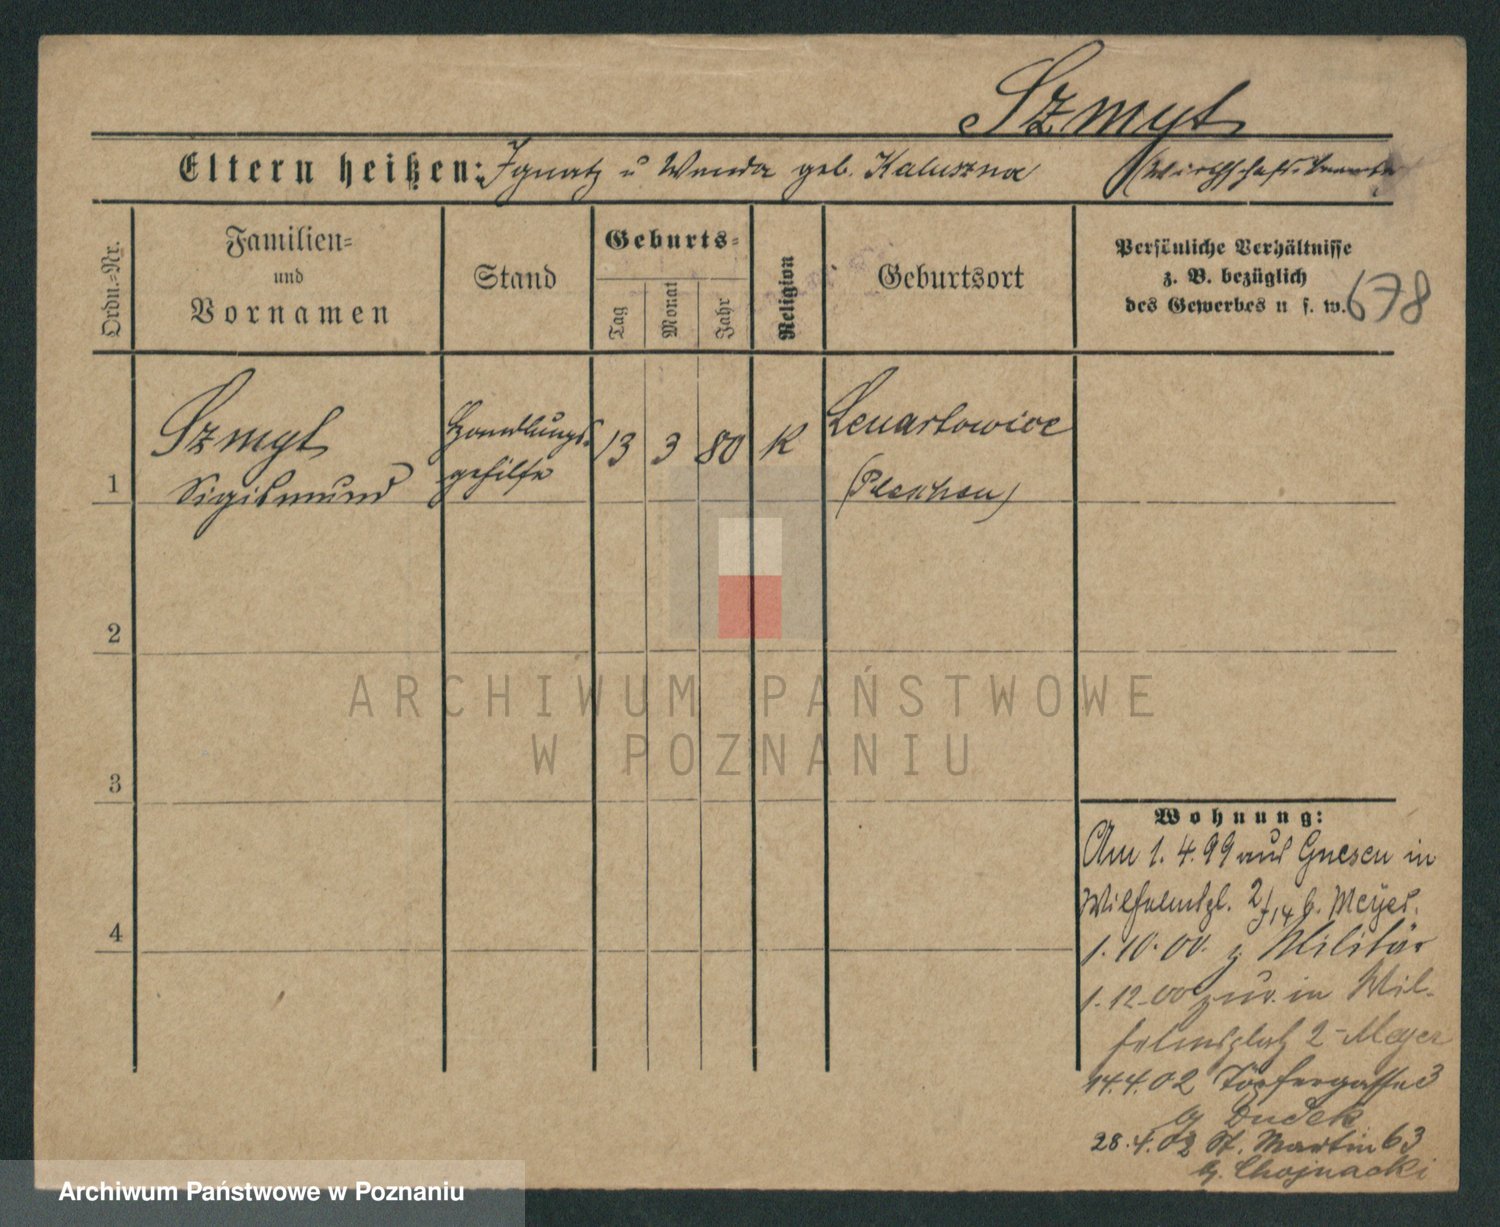 Szmyt
Eltern heißen: Ignatz u Wanda geb. Kaluszna (Wirthschafts-beamter
Ordn.-Nr.
Familien-
und
Vornamen
Stand
Geburts-
Tag
Monat
Jahr
Religion
Geburtsort
Persönliche Verhältnisse
z. B. bezüglich
des Gewerbes u s. w.
678
1
Szmyt
Sigismund
Handlungs-
gehilfe
13
3
80
K
Lenartowice
(Pleschen)
2
3
4
ARCHIWUM PAŃSTWOWE
W POZNANIU
Wohnung:
Am 1. 4. 99 aus Gnesen in
Wilhelmspl. 2 b. Meyer.
1. 10. 00. z Militär
1. 12. 00 zur. in Wil-
helmsplatz 2 - Meyer
14.4.02 Töpfergasse 3
b Dudek
28.4.02 St. Martin 63
b. Chojnacki
Archiwum Państwowe w Poznaniu